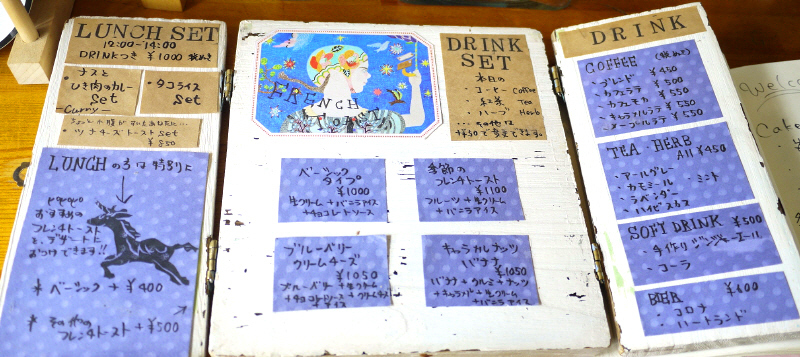 LUNCH SET
12:00-14:00
DRINKつき ¥1000 税めき
・ナスと
ひき肉のカレー
Set
-Curry-
・タコライス
Set
ちょっと小腹がすいたあなたに…
・ツナチーズトースト Set
¥850
LUNCHのろは特別に
おすすめの
フレンチトースト
を、デザートに
おつけできます!!
* ベーシック +¥400
* その他の
フレンチトースト +¥500
FRENCH
TOAST
DRINK
SET
本日の
・コーヒー Coffee
・紅茶 Tea
・ハーブ Herb
…その他は
ベーシック
タイプ
¥1000
生クリーム+バニラアイス
+チョコレートソース
季節の
フレンチトースト
¥1100
フルーツ+生クリーム
+バニラアイス
ブルーベリー
クリームチーズ
¥1050
ブルーベリー+生クリーム
+チョコレートソース+クリームチーズ
アイス
キャラメルナッツ
バナナ
¥1050
バナナ+クルミ+ナッツ
+キャラメル+生クリーム
+バニラアイス
DRINK
COFFEE
・ブレンド ¥450
・カフェラテ ¥500
・カフェモカ ¥550
・キャラメルラテ ¥550
・メープルラテ ¥550
TEA・HERB
All ¥450
・アールグレー
・カモミール ・ミント
・ラベンダー
・ハイビスカス
SOFT DRINK ¥500
・手作りジンジャーエール
・コーラ
BEER ¥600
・コロナ
・ハートランド
Welcome
Cafe